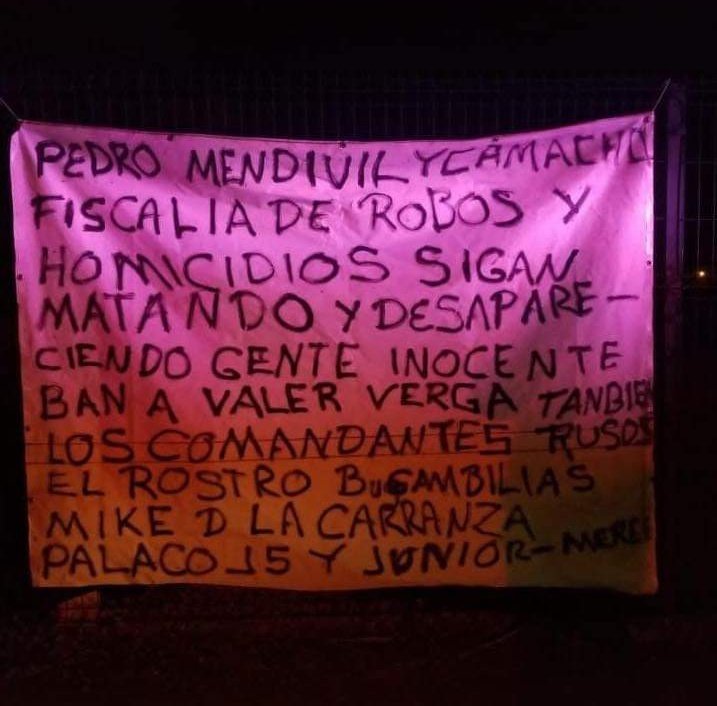 PEDRO MENDIVIL Y CAMACHO
FISCALIA DE ROBOS Y
HOMICIDIOS SIGAN
MATANDO Y DESAPARE-
CIENDO GENTE INOCENTE
BAN A VALER VERGA TANBIEN
LOS COMANDANTES RUSOS
EL ROSTRO BUGAMBILIAS
MIKE D LA CARRANZA
PALACO 15 Y JUNIOR-